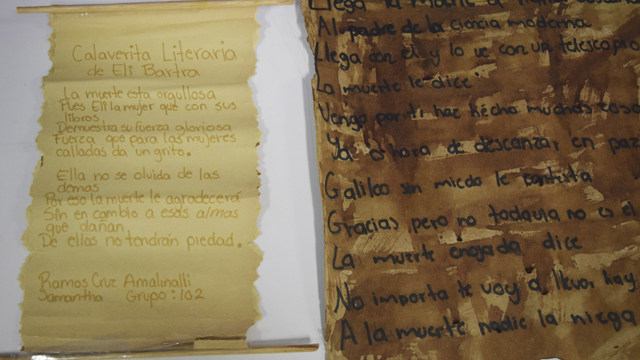 Calaverita Literaria
de Eli Bartra
La muerte esta orgullosa
Pues Eli la mujer que con sus
libros
Demuestra su fuerza gloriosa
Fuerza que para las mujeres
calladas da un grito.
Ella no se olvida de las
demas
Por eso la muerte le agradecerá
Sin en cambio a esas almas
que dañan
De ellas no tendrán piedad.
Ramos Cruz Amalinalli
Samantha Grupo: 102
Llega la muerte
Al padre de la ciencia moderna
Llega con el y lo ve con un telescopio
La muerte le dice
Vengo por ti haz hecho muchas cosas
Ya ahora de descanzar en paz
Galileo sin miedo le contesta
Gracias pero no todavia no es el
La muerte enojada dice
No importa te voy a llevar hay
A la muerte nadie la niega